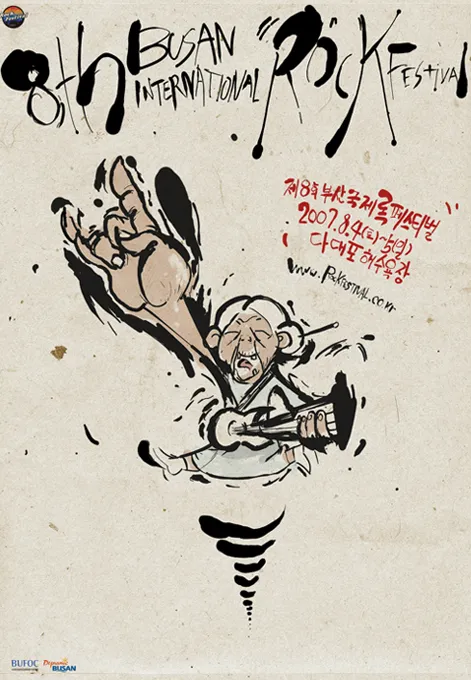 8th BUSAN INTERNATIONAL ROCK FESTIVAL
제8회 부산국제록페스티벌
2007.8.4(토)~5(일)
다대포 해수욕장
www.ROCKFESTIVAL.co.kr
BUFOC
Dynamic BUSAN